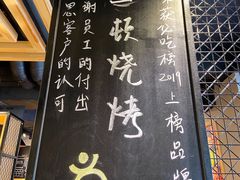 荣获必吃榜2019上榜品牌
一顿烧烤
谢员工的付出
思客户的认可